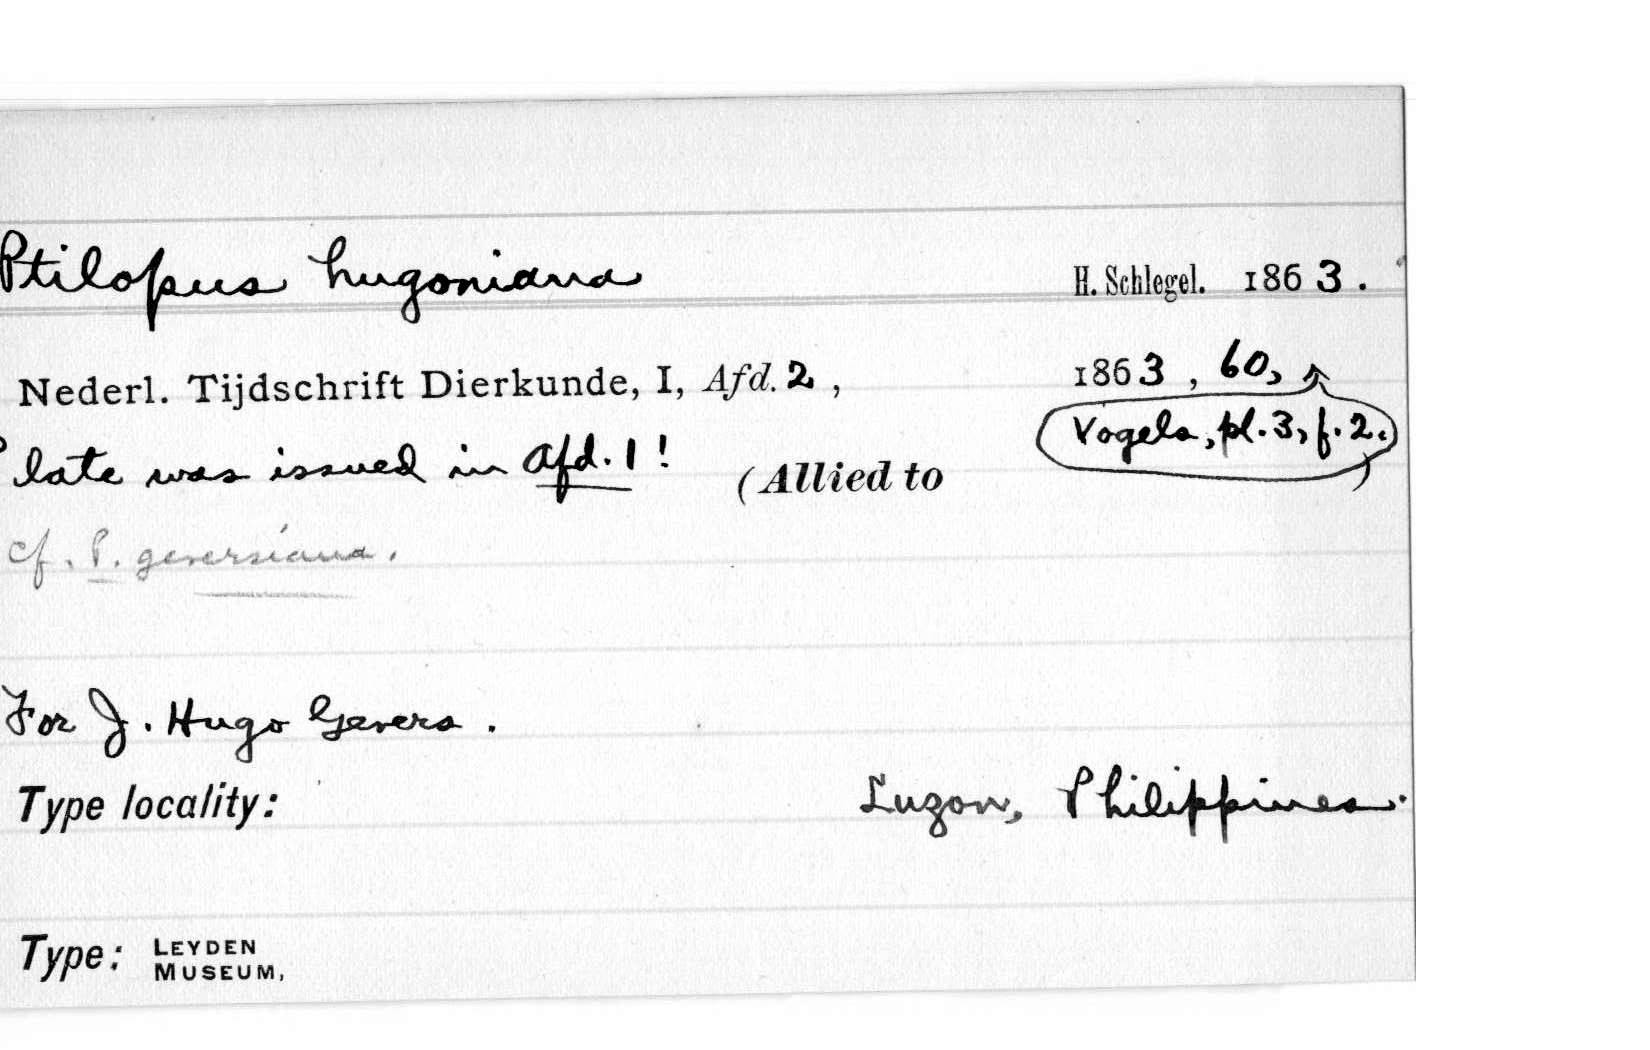 Ptilopus hugoniana H. Schlegel. 1863.
Nederl. Tijdschrift Dierkunde, I, Afd. 2, 1863, 60,
Vogels, pl. 3, f. 2.
Plate was issued in Afd. 1! (Allied to )
cf. P. geversiana.
For J. Hugo Gevers.
Type locality: Luzon, Philippines.
Type: LEYDEN
MUSEUM,